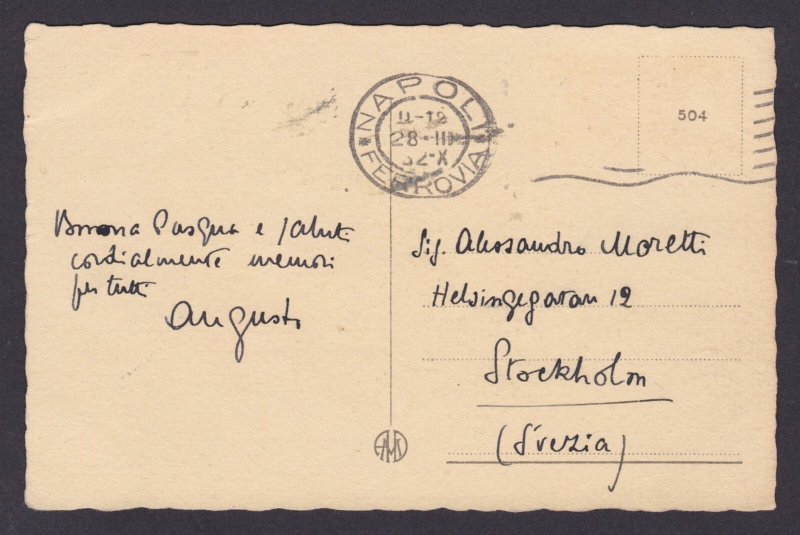 NAPOLI
11-12
28·III
32·X
FERROVIA
504
Buona Pasqua e saluti
cordialmente memori
per tutti
Augusto
Sig. Alessandro Moretti
Helsingegatan 12
Stockholm
(Svezia)